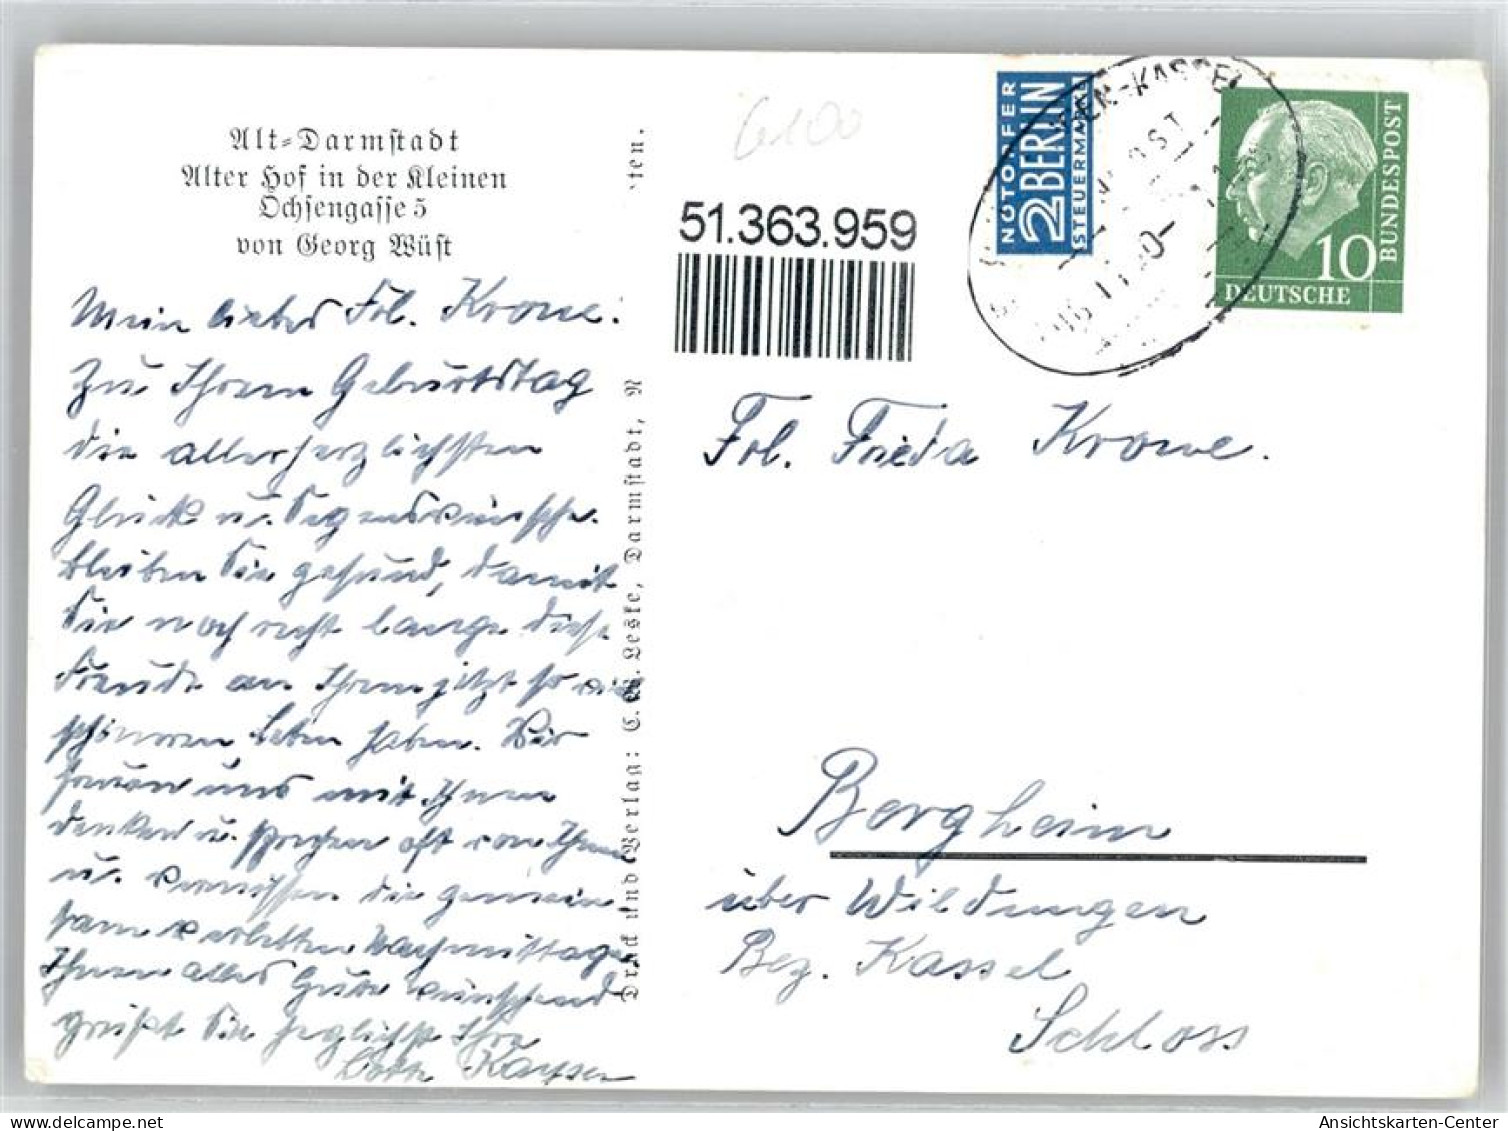 Alt-Darmstadt
Alter Hof in der Kleinen
Ochsengasse 5
von Georg Wüst
Mein liebes Frl. Krone!
Zu Ihrem Geburtstag
die allerherzlichsten
Glück u. Segenswünsche.
bleiben Sie gesund, damit
Sie noch recht lange diese
Freude an Ihrem jetzt so
schöneren Leben haben. Wir
freuen uns mit Ihnen
denken u. sprechen oft von Ihnen
u. vermissen die gemein
sam verlebten Nachmittage
Ihnen alles Gute wünschend
grüßt Sie herzlichst Ihre
Kayser
Druck und Verlag: C. W. Leske, Darmstadt, N
ten.
6100
51.363.959
NOTOPFER
2 BERLIN
STEUERMARKE
-KASSEL
10
DEUTSCHE
BUNDESPOST
Frl. Frieda Krone.
Bergheim
über Wildungen
Bez. Kassel
Schloss
Ansichtskarten-Center